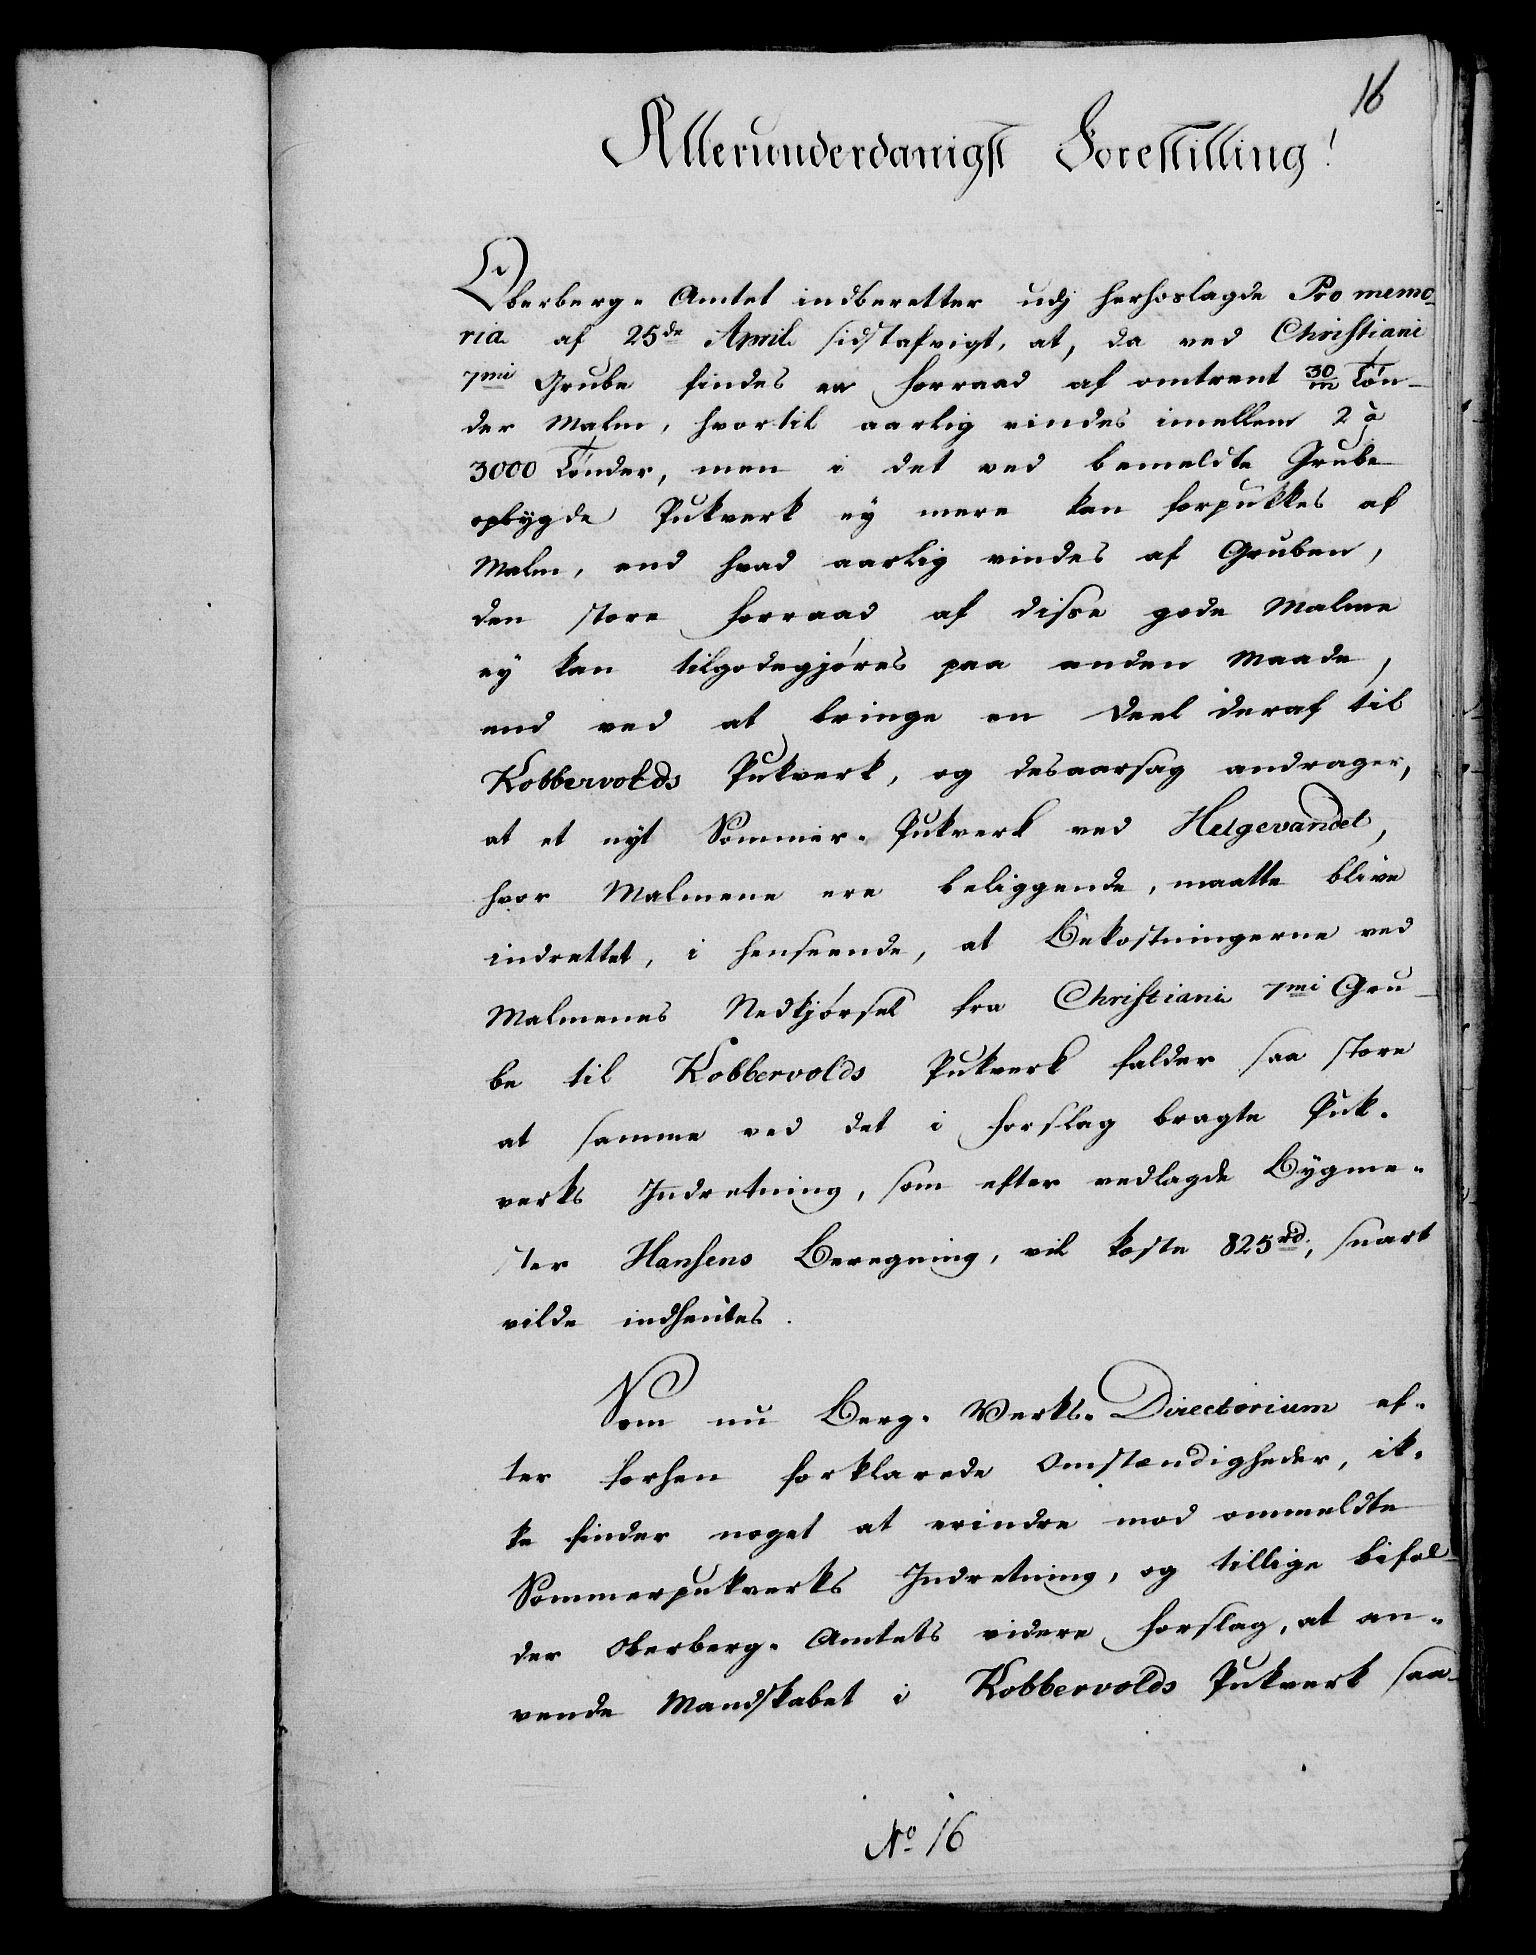 16
Allerunderdanigst Forestilling!
Oberberg-Amtet indberetter udj herhoslagde Pro memo-
ria af 25de April sidstafvigt, at, da ved Christiani
7mi Grube findes en Forraad af omtrent 30/m Tøn-
der Malm, hvortil aarlig vindes imellem 2 à
3000 Tønder, men i det ved bemeldte Grube
opbygde Pukverk ey mere kan forpukkes af
Malm, end hvad aarlig vindes af Gruben,
den store Forraad af disse gode Malme
ey kan tilgodegjøres paa anden Maade,
end ved at bringe en Deel deraf til
Kobbervolds Pukverk, og desaarsag andrager,
at et nyt Sommer-Pukverk ved Helgevandet,
hvor Malmene ere beliggende, maatte blive
indrettet, i Henseende, at Bekostningerne ved
Malmenes Nedkjørsel fra Christiani 7mi Gru-
be til Kobbervolds Pukverk falder saa store
at samme ved det i Forslag bragte Puk-
verks Indretning, som efter vedlagde Bygme-
ster Hansens Beregning, vil koste 825 rd, snart
vilde indhentes.
Som nu Berg-Verks-Directorium ef-
ter forhen forklarede Omstændigheder, ik-
ke finder noget at erindre mod ommeldte
Sommerpukverks Indretning, og tillige bifal-
der Oberberg-Amtets videre Forslag, at an-
vende Mandskabet i Kobbervolds Pukverk saa-
No 16